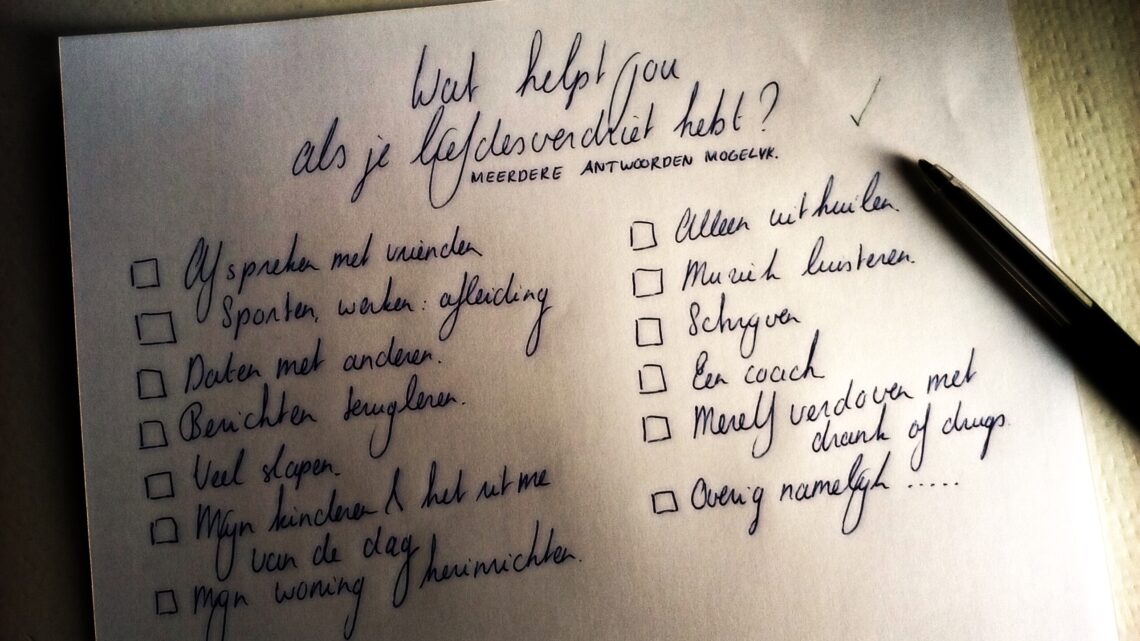 Wat helpt jou
als je liefdesverdriet hebt?
MEERDERE ANTWOORDEN MOGELIJK.
Afspreken met vrienden
Sporten, werken: afleiding
Daten met anderen.
Berichten teruglezen.
Veel slapen.
Mijn kinderen & het ritme
van de dag
Mijn woning herinrichten.
Alleen uithuilen.
Muziek luisteren.
Schrijven
Een coach
Mezelf verdoven met
drank of drugs.
Overig namelijk .....